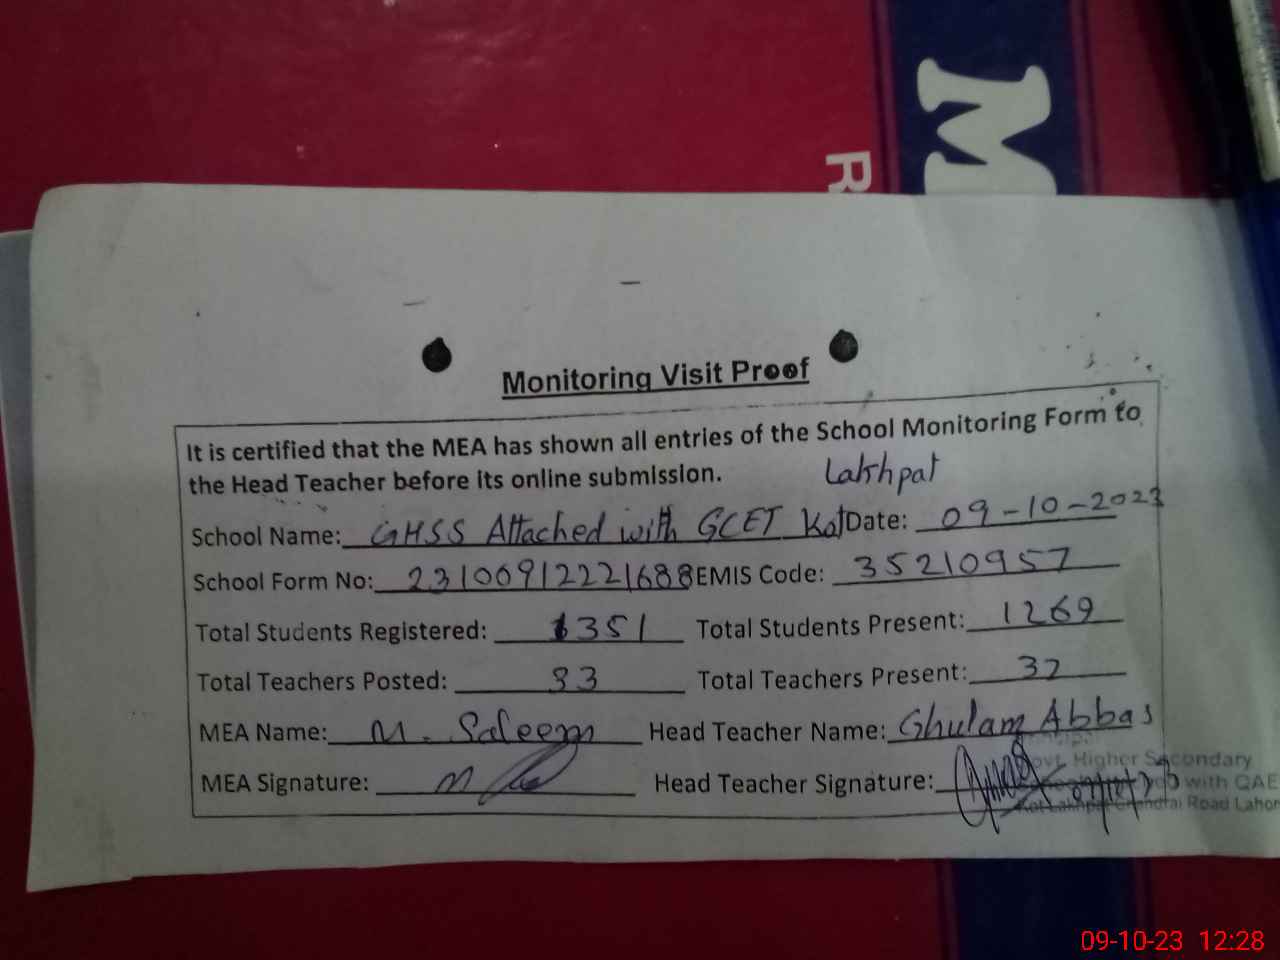 M
R
Monitoring Visit Proof
It is certified that the MEA has shown all entries of the School Monitoring Form to
the Head Teacher before its online submission.
Lakhpat
School Name: GHSS Attached with GCET Kot Date: 09-10-2023
School Form No: 23100912221688 EMIS Code: 35210957
Total Students Registered: 1351 Total Students Present: 1269
Total Teachers Posted: 33 Total Teachers Present: 32
MEA Name: M. Saleem Head Teacher Name: Ghulam Abbas
MEA Signature: Head Teacher Signature:
Govt. Higher Secondary
with QAE
Kot Lakhpat Chandrai Road Lahor
09-10-23 12:28